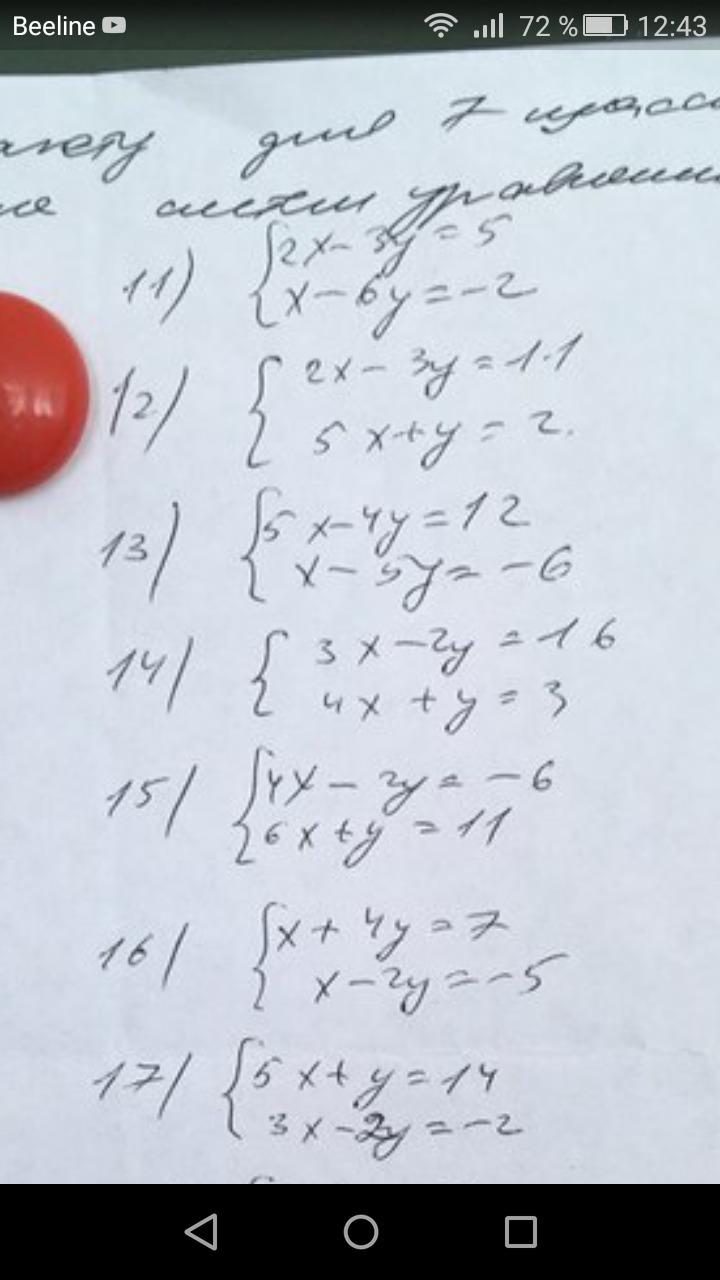 Beeline 72 % 12:43
для 7 класс
систем уравнени
11) { 2x - 3y = 5
x - 6y = -2
12) { 2x - 3y = 11
5x + y = 2.
13) { 5x - 4y = 12
x - 5y = -6
14) { 3x - 2y = 16
4x + y = 3
15) { 4x - 2y = -6
6x + y = 11
16) { x + 4y = 7
x - 2y = -5
17) { 5x + y = 14
3x - 2y = -2